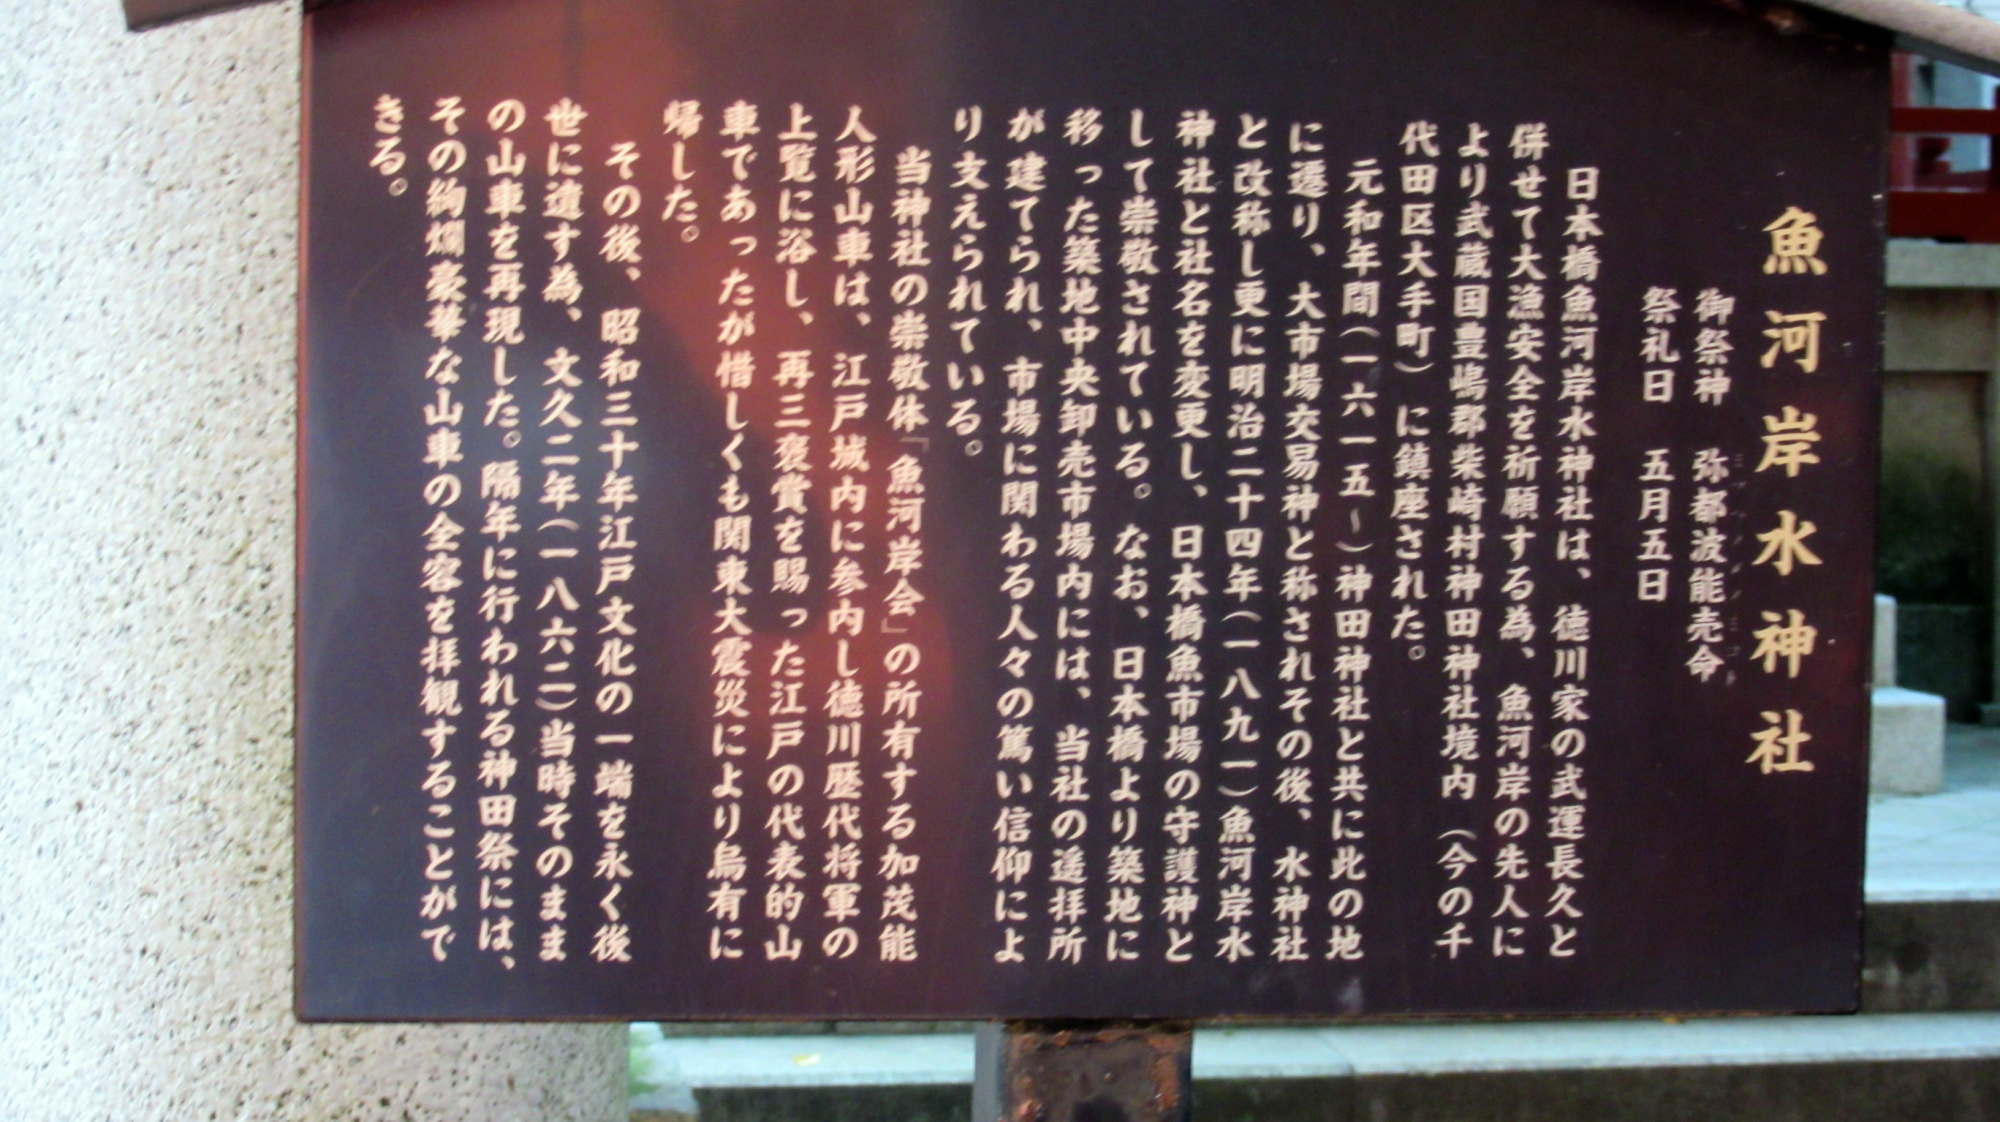 魚河岸水神社
御祭神　弥都波能売命
祭礼日　五月五日
日本橋魚河岸水神社は、徳川家の武運長久と
併せて大漁安全を祈願する為、魚河岸の先人に
より武蔵国豊嶋郡柴崎村神田神社境内（今の千
代田区大手町）に鎮座された。
元和年間（一六一五～）神田神社と共に此の地
に遷り、大市場交易神と称されその後、水神社
と改称し更に明治二十四年（一八九一）魚河岸水
神社と社名を変更し、日本橋魚市場の守護神と
して崇敬されている。なお、日本橋より築地に
移った築地中央卸売市場内には、当社の遥拝所
が建てられ、市場に関わる人々の篤い信仰によ
り支えられている。
当神社の崇敬体「魚河岸会」の所有する加茂能
人形山車は、江戸城内に参内し徳川歴代将軍の
上覧に浴し、再三褒賞を賜った江戸の代表的山
車であったが惜しくも関東大震災により烏有に
帰した。
その後、昭和三十年江戸文化の一端を永く後
世に遺す為、文久二年（一八六二）当時そのまま
の山車を再現した。隔年に行われる神田祭には、
その絢爛豪華な山車の全容を拝観することがで
きる。